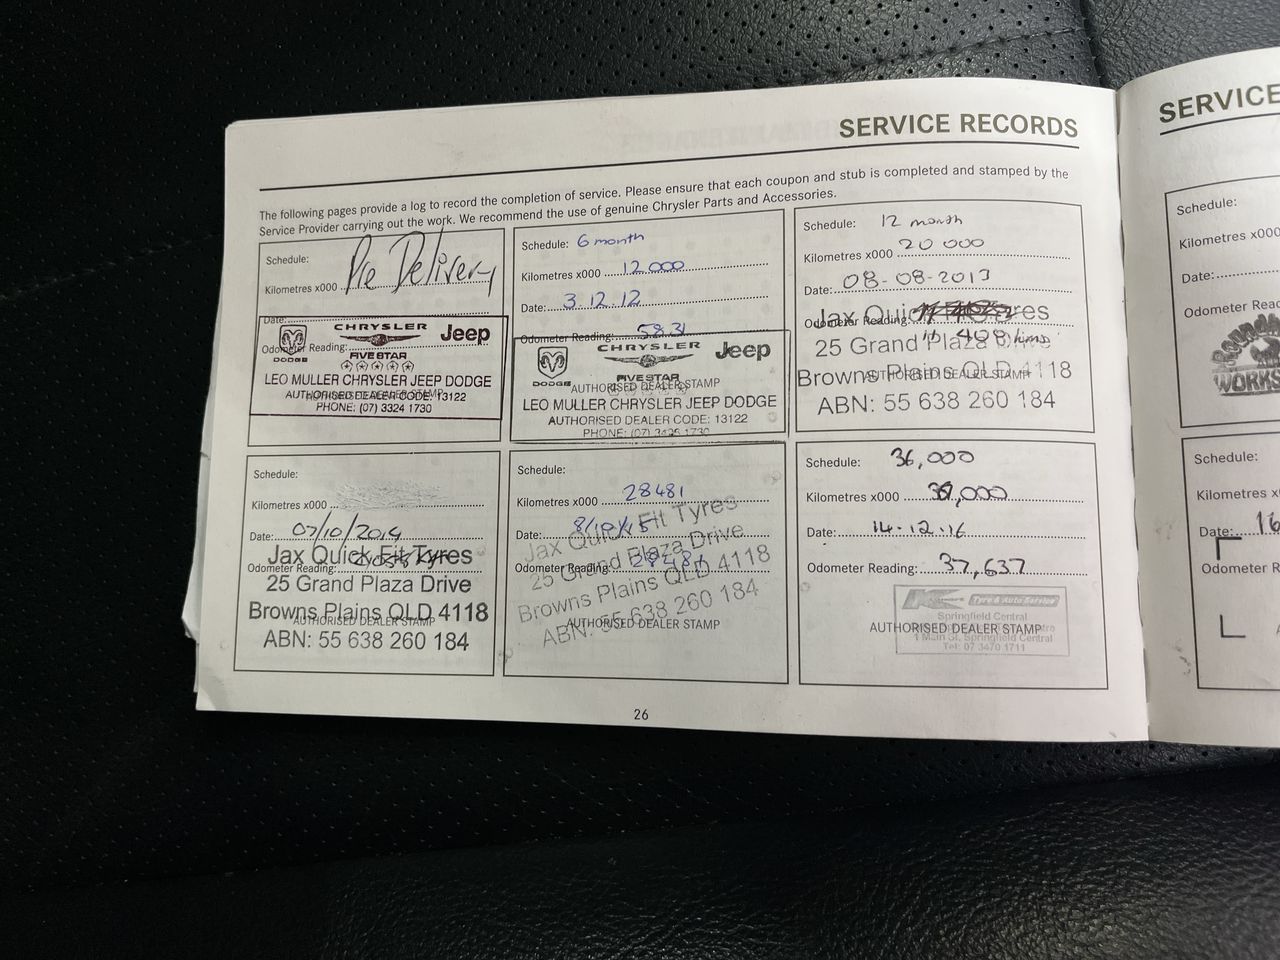 SERVICE RECORDS
The following pages provide a log to record the completion of service. Please ensure that each coupon and stub is completed and stamped by the
Service Provider carrying out the work. We recommend the use of genuine Chrysler Parts and Accessories.
Schedule: Pre Delivery
Kilometres x000
Date:
CHRYSLER Jeep
DODGE
Odometer Reading:
FIVE STAR
LEO MULLER CHRYSLER JEEP DODGE
AUTHORISED DEALER STAMP
AUTHORISED DEALER CODE: 13122
PHONE: (07) 3324 1730
Schedule: 6 month
Kilometres x000 12 000
Date: 3.12.12
Odometer Reading: 5831
CHRYSLER Jeep
DODGE
FIVE STAR
AUTHORISED DEALER STAMP
LEO MULLER CHRYSLER JEEP DODGE
AUTHORISED DEALER CODE: 13122
PHONE: (07) 3425 1730
Schedule: 12 month
Kilometres x000 20 000
Date: 08-08-2013
Jax Quick Tyres
Odometer Reading:
10 408 kms
25 Grand Plaza Drive
Browns Plains QLD 4118
AUTHORISED DEALER STAMP
ABN: 55 638 260 184
Schedule:
Kilometres x000
Date: 07/10/2014
Jax Quick Fit Tyres
Odometer Reading:
25 Grand Plaza Drive
Browns Plains QLD 4118
AUTHORISED DEALER STAMP
ABN: 55 638 260 184
Schedule:
Kilometres x000 28481
Date: 8/10/15
Jax Quick Fit Tyres
Odometer Reading: 28481
25 Grand Plaza Drive
Browns Plains QLD 4118
ABN: 55 638 260 184
AUTHORISED DEALER STAMP
Schedule: 36,000
Kilometres x000 37,000
Date: 14.12.16
Odometer Reading: 37,637
Tyre & Auto Service
Springfield Central
AUTHORISED DEALER STAMP
1 Main St, Springfield Central
Tel: 07 3470 1711
26
SERVICE
Schedule:
Kilometres x000
Date:
Odometer
WORKS
Schedule:
Kilometres
Date: 16
Odometer